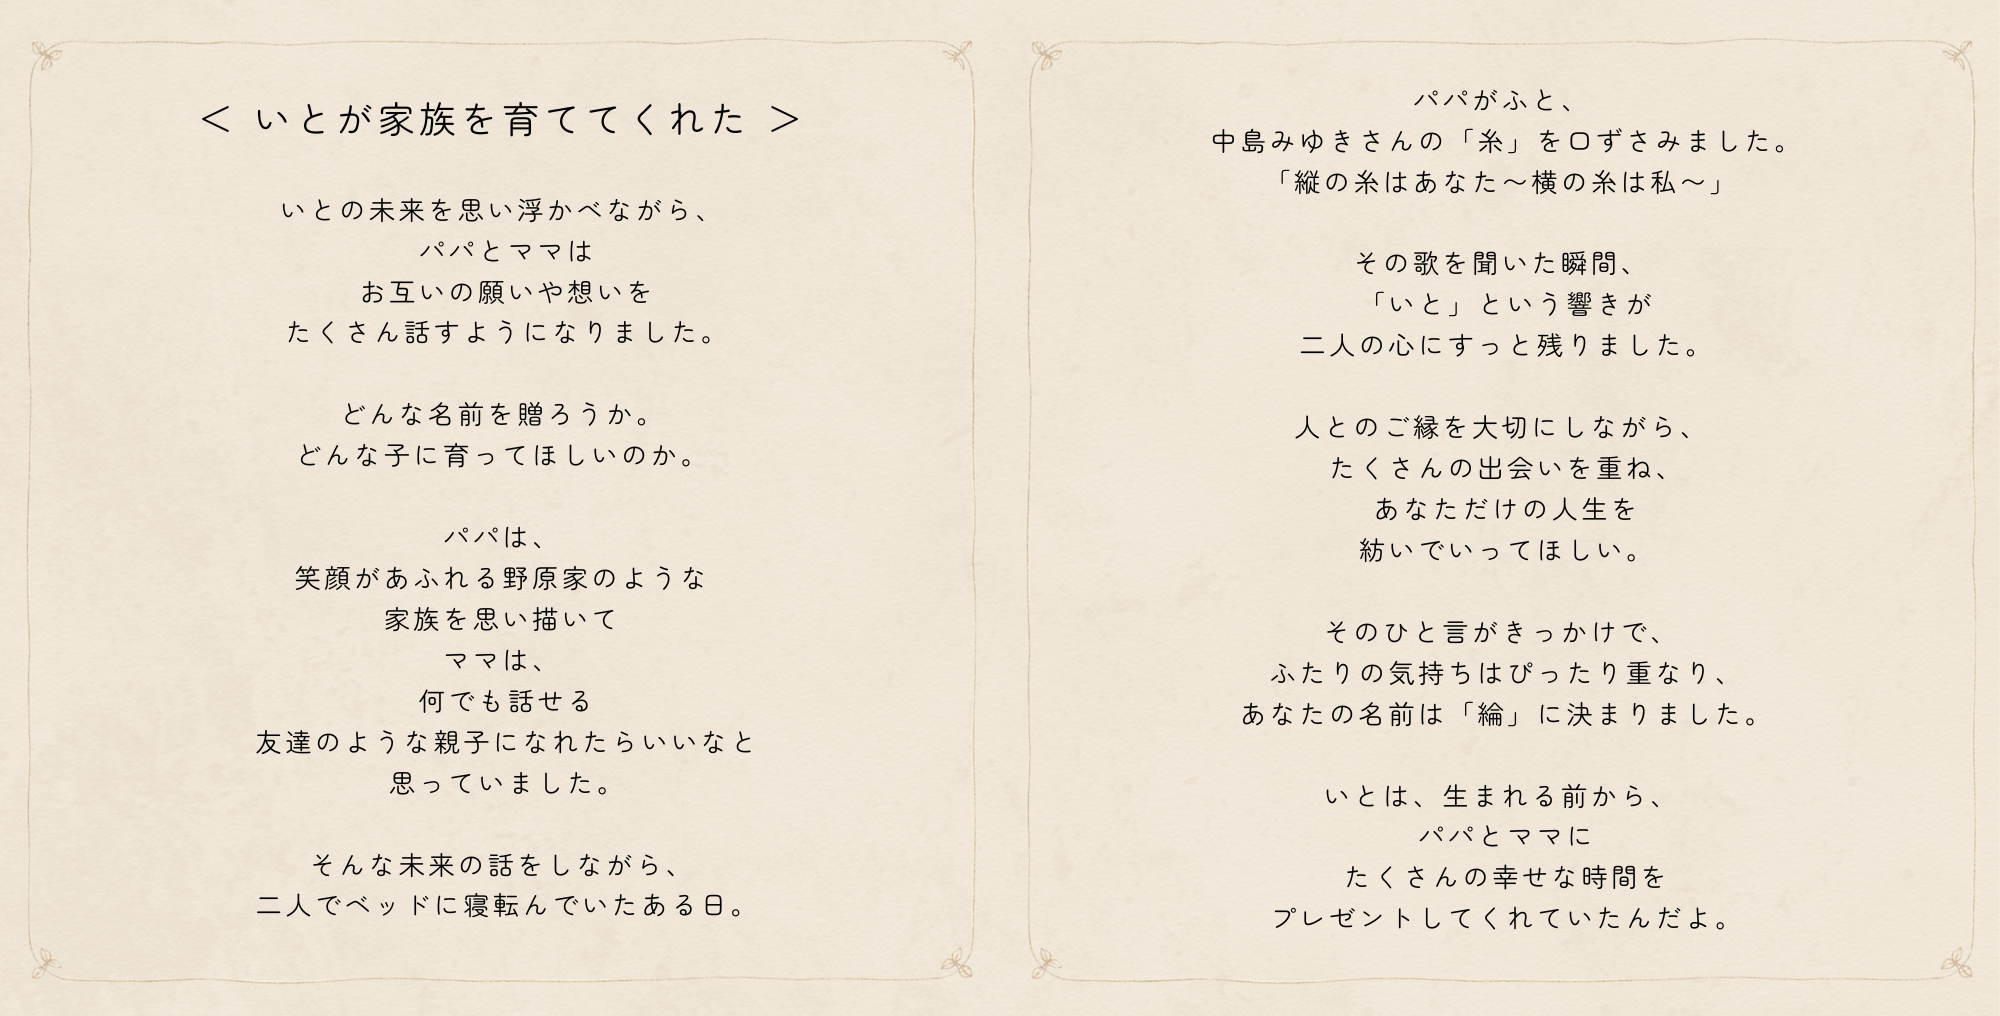 ＜ いとが家族を育ててくれた ＞
いとの未来を思い浮かべながら、
パパとママは
お互いの願いや想いを
たくさん話すようになりました。
どんな名前を贈ろうか。
どんな子に育ってほしいのか。
パパは、
笑顔があふれる野原家のような
家族を思い描いて
ママは、
何でも話せる
友達のような親子になれたらいいなと
思っていました。
そんな未来の話をしながら、
二人でベッドに寝転んでいたある日。
パパがふと、
中島みゆきさんの「糸」を口ずさみました。
「縦の糸はあなた〜横の糸は私〜」
その歌を聞いた瞬間、
「いと」という響きが
二人の心にすっと残りました。
人とのご縁を大切にしながら、
たくさんの出会いを重ね、
あなただけの人生を
紡いでいってほしい。
そのひと言がきっかけで、
ふたりの気持ちはぴったり重なり、
あなたの名前は「綸」に決まりました。
いとは、生まれる前から、
パパとママに
たくさんの幸せな時間を
プレゼントしてくれていたんだよ。